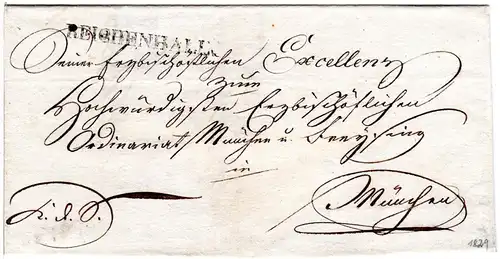 REICHENHALL.
Seiner Erzbischöflichen Excellenz
zum
Hochwürdigsten Erzbischöflichen
Ordinariat München u. Freysing
in
München
K. d. S.
1829